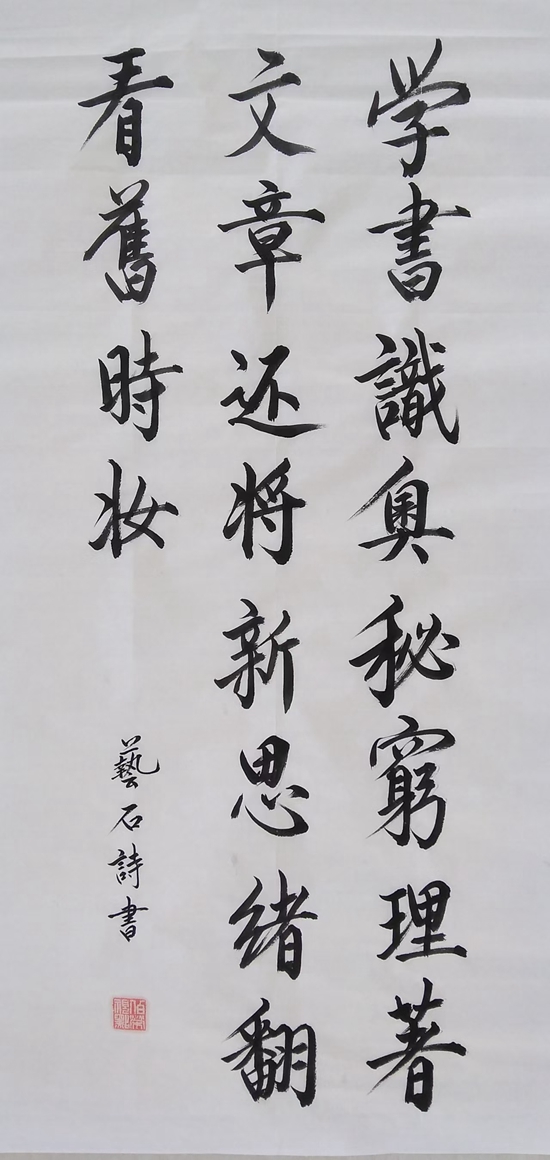 学書識奥秘窮理著
文章还将新思緒翻
看舊時妆
藝石詩書